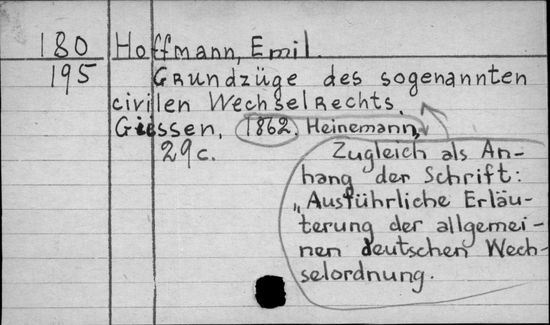 180 Hoffmann, Emil.
195 Grundzüge des sogenannten
civilen Wechselrechts.
Giessen, 1862. Heinemann,
29c.
Zugleich als An-
hang der Schrift:
„Ausführliche Erläu-
terung der allgemei-
nen deutschen Wech-
selordnung.